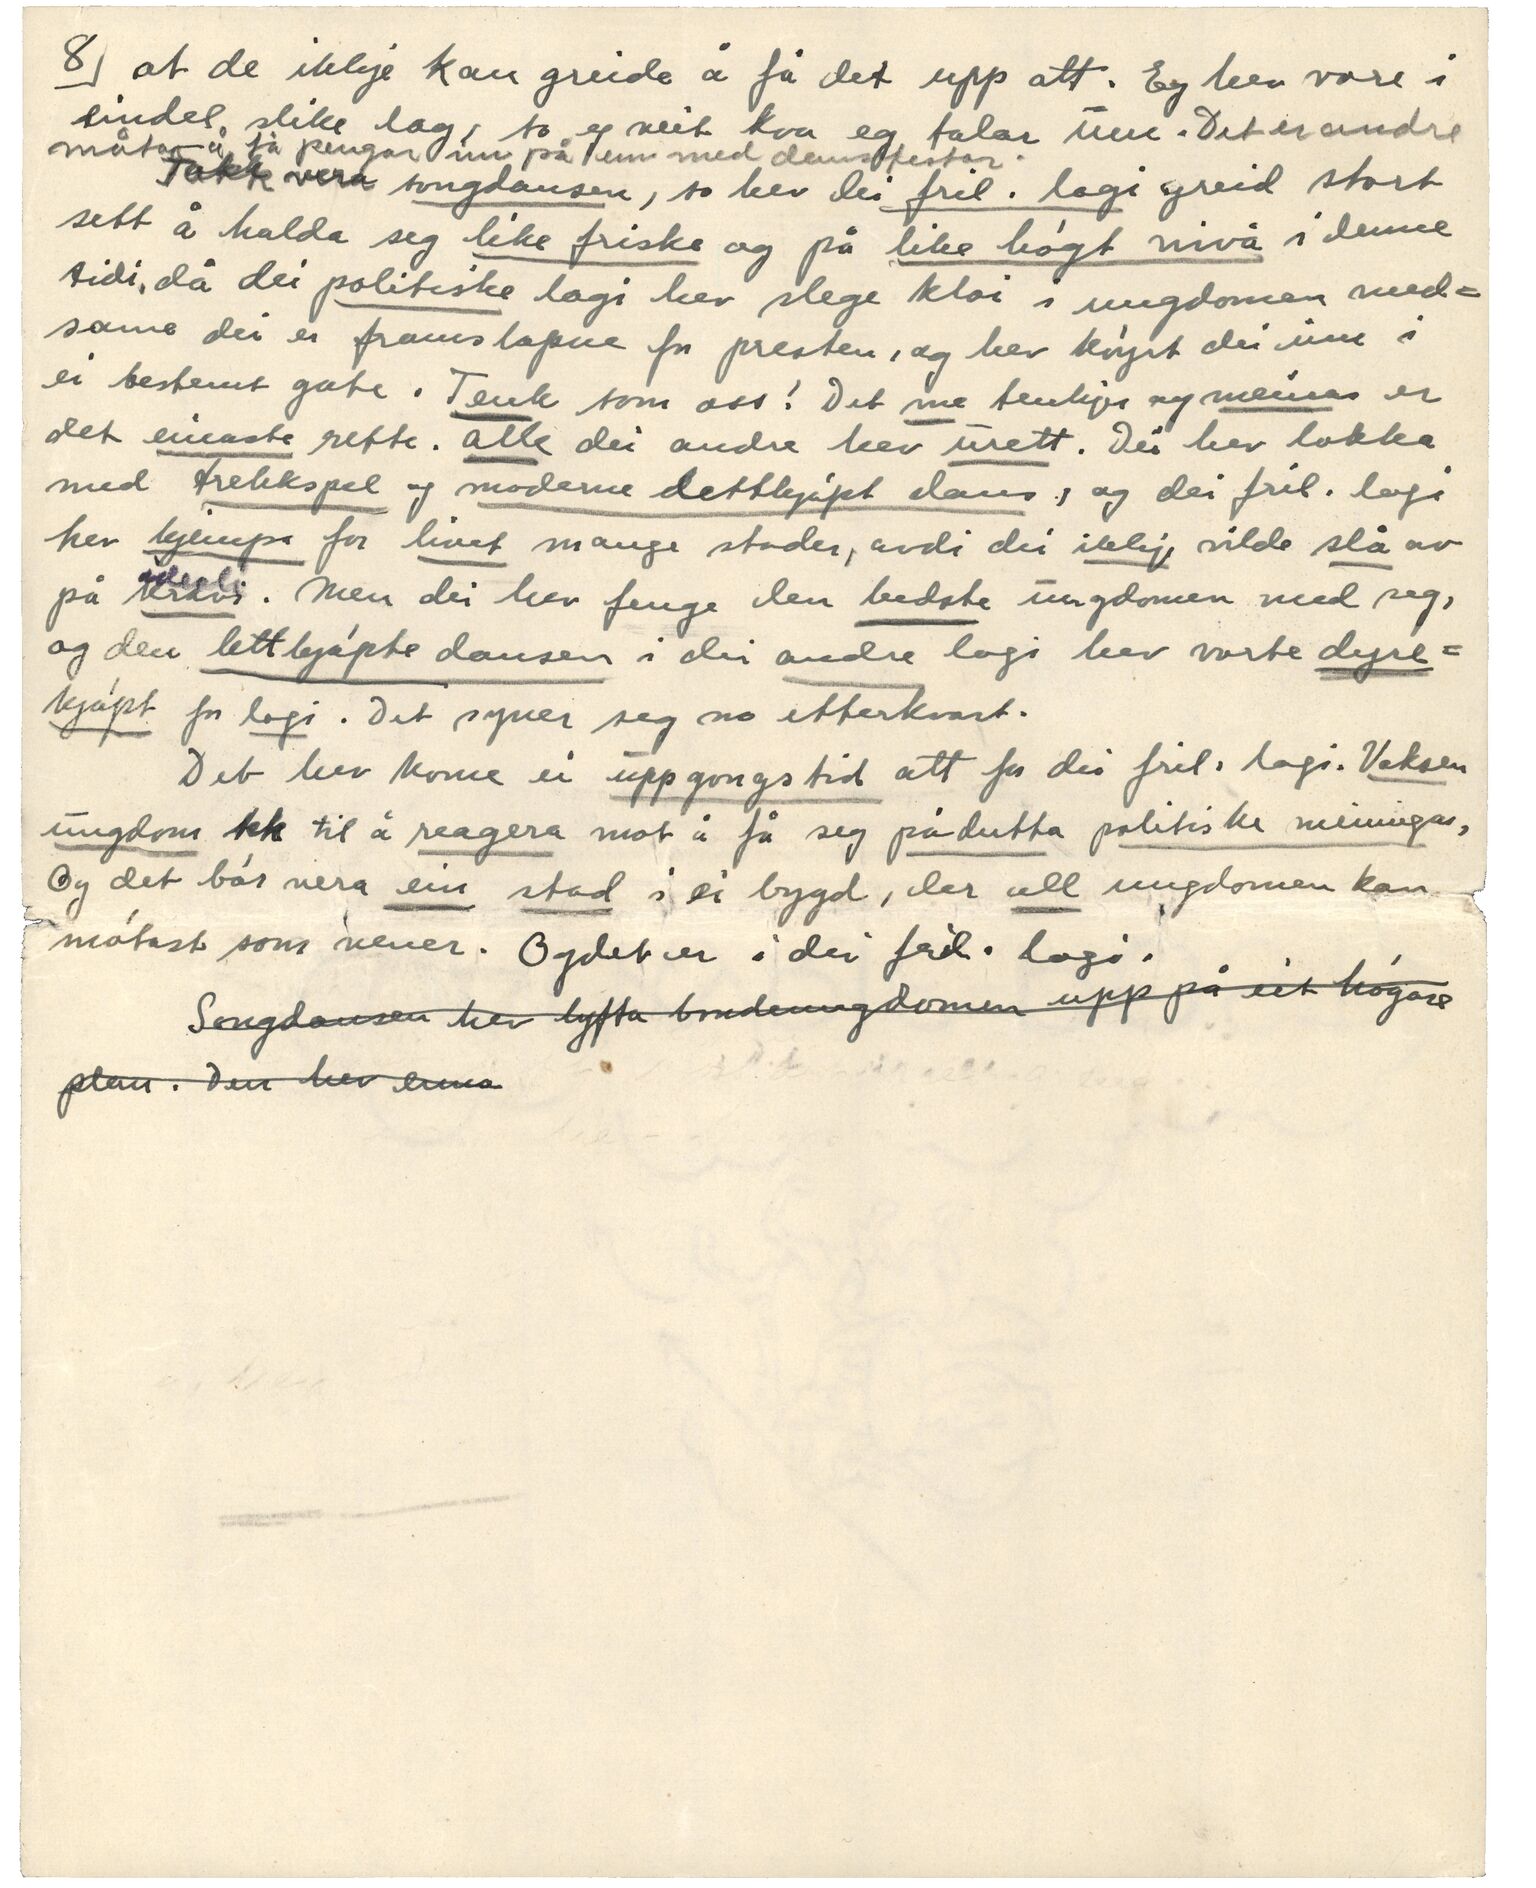 8) at de ikkje kan greide å få det upp att. Eg hev vore i
eindel slike lag, so eg veit kva eg talar um. Det er andre
måtar å få pengar inn på enn med dansfestar.
Takk vera songdansen, so hev dei fril. lagi greid stort
sett å halda seg like friske og på like høgt nivå i denne
tidi, då dei politiske lagi hev slege kloi i ungdomen med=
same dei er framslopne for presten, og hev køyrt dei inn i
ei bestemt gate. Tenk som oss! Det me tenkjer og meinar er
det einaste rette. Alle dei andre hev urett. Dei hev lokka
med trekkspel og moderne lettkjøpt dans, og dei fril. lagi
hev kjempa for livet mange stader, avdi dei ikkje vilde slå av
på kravi. Men dei hev fenge den bedste ungdomen med seg,
og den lettkjøpte dansen i dei andre lagi hev vorte dyre=
kjøpt for lagi. Det syner seg no etterkvart.
Det hev kome ei uppgongstid att for dei fril. lagi. Vaksen
ungdom kk til å reagera mot å få seg pådutta politiske meiningar,
Og det bør vera ein stad i ei bygd, der all ungdomen kan
møtast som vener. Og det er i dei fril. lagi.
Songdansen hev lyfta bondeungdomen upp på eit høgare
plan. Den hev enno